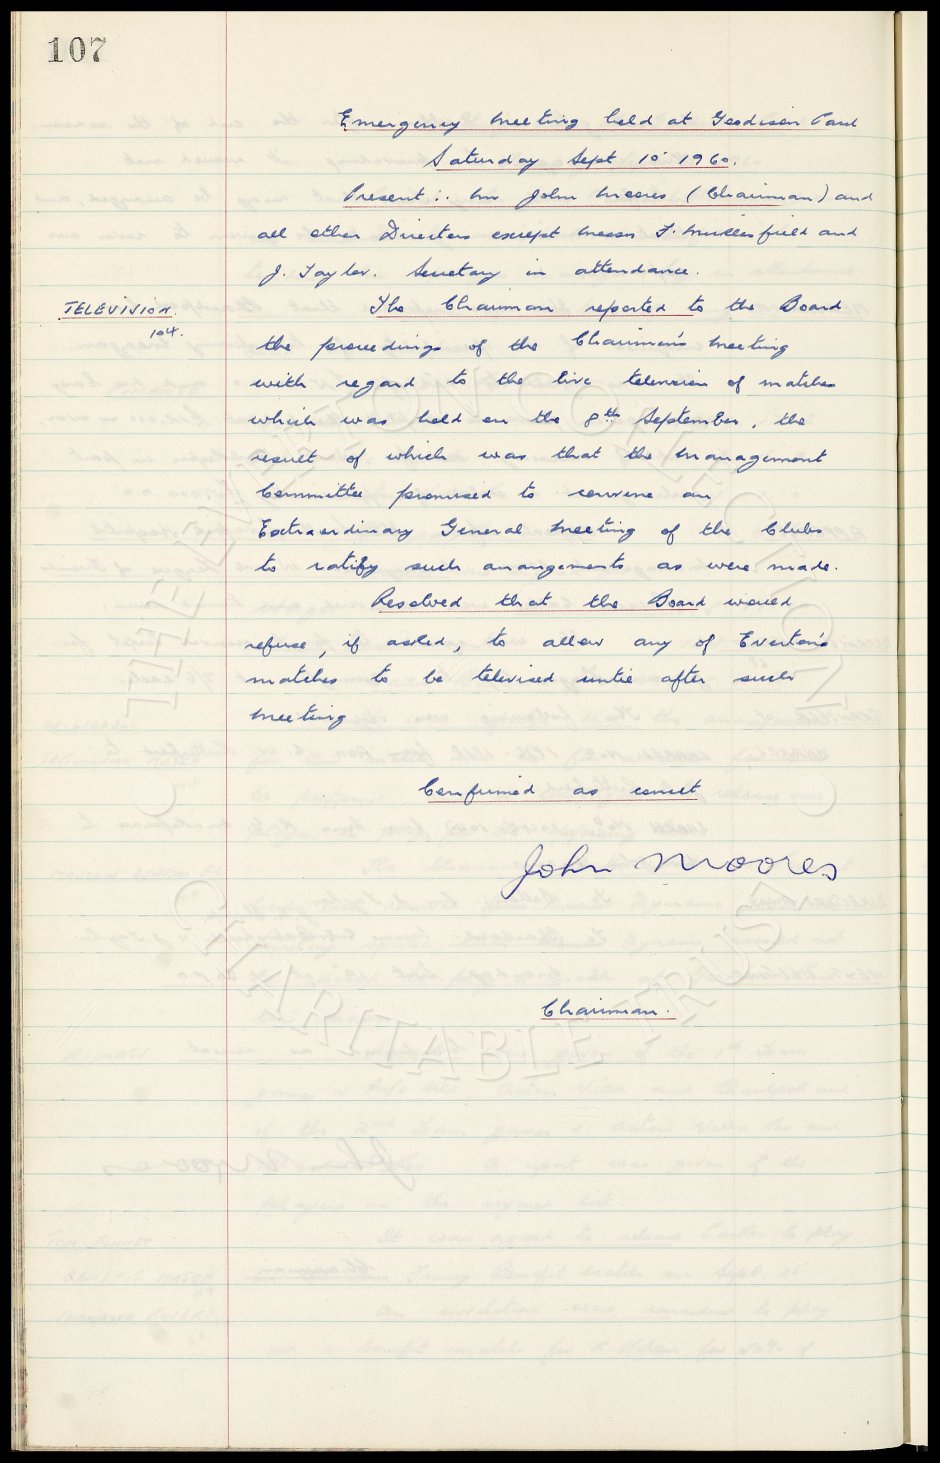 107
Emergency Meeting held at Goodison Park
Saturday Sept 10 1960.
Present:- Mr John Moores (Chairman) and
all other Directors except Messrs F. Micklesfield and
J. Taylor. Secretary in attendance.
TELEVISION. The Chairman reported to the Board
104.
the proceedings of the Chairman's Meeting
with regard to the live television of matches
which was held on the 8th September, the
result of which was that the Management
Committee promised to convene an
Extraordinary General Meeting of the Clubs
to ratify such arrangements as were made.
Resolved that the Board would
refuse, if asked, to allow any of Everton's
matches to be televised until after such
Meeting
Confirmed as correct
John Moores
Chairman.
EVERTON COLLECTION
CHARITABLE TRUST